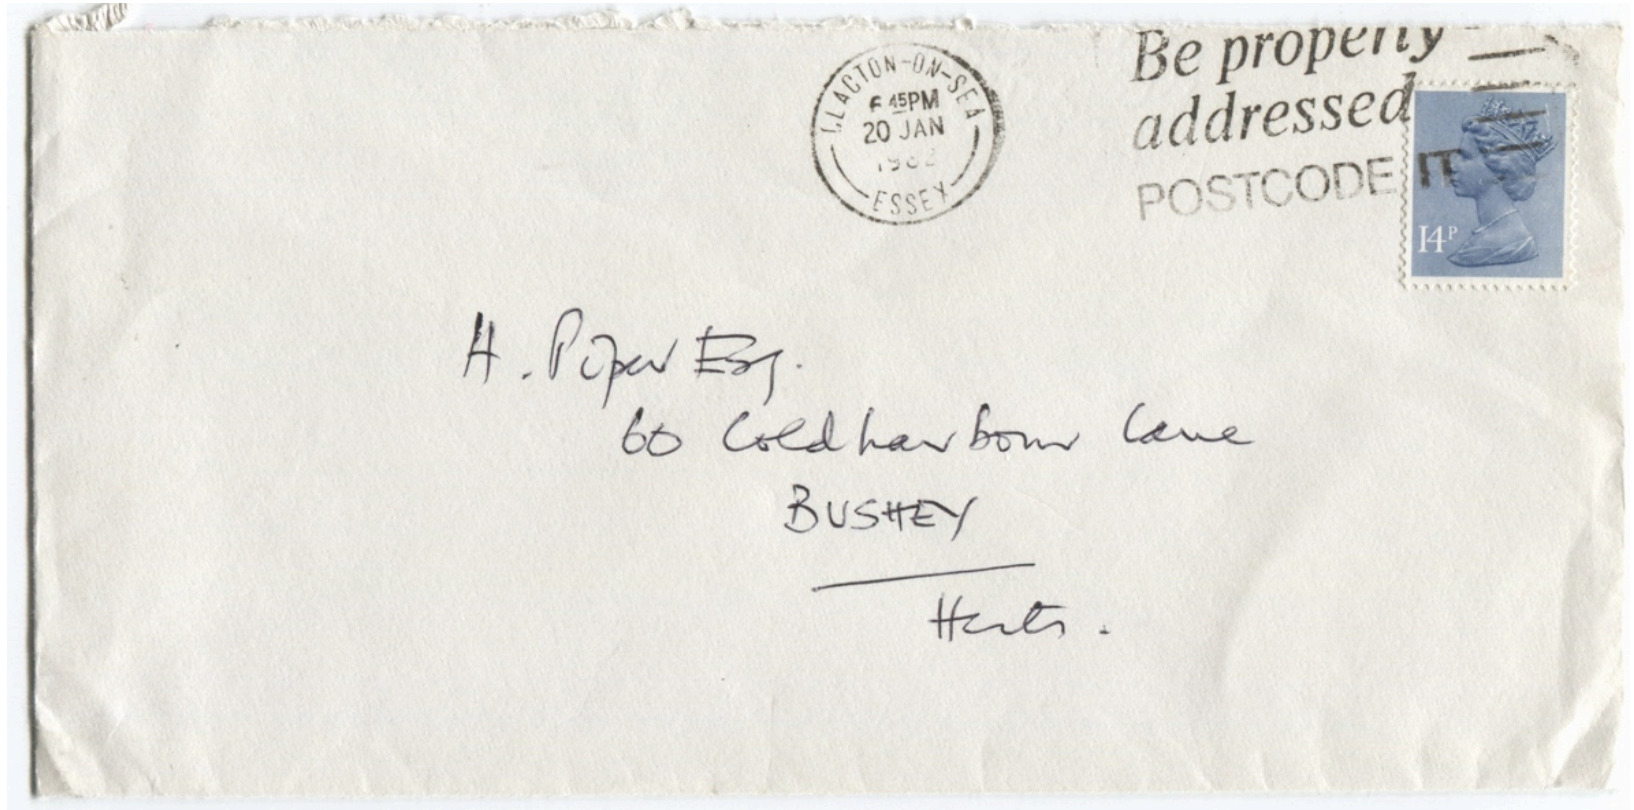 CLACTON-ON-SEA
6 45PM
20 JAN
1982
ESSEX
Be properly
addressed
POSTCODE IT
14P
H. Piper Esq.
60 Coldharbour Lane
BUSHEY
Herts.